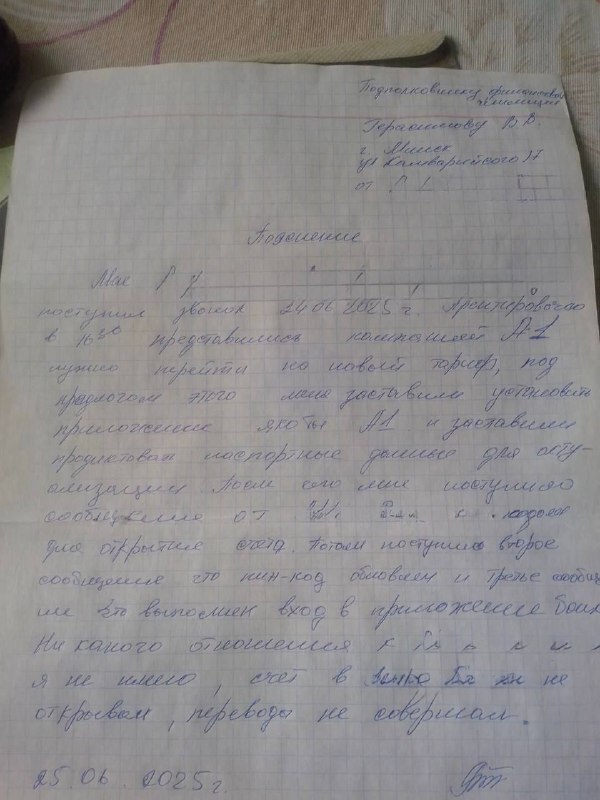 Подполковнику финансовой
милиции
Герасимову В.В.
г. Минск
ул Кальварийского 17
от
Пояснение
Мне
поступил звонок 24.06 2025 г.
в 16 30 представились компанией А1
нужно перейти на новый тариф, под
предлогом этого меня заставили установить
приложение якобы А1 и заставили
продиктовать паспортные данные для акту-
ализации. После чего мне поступило
сообщение от кодом
для открытие счета. Потом поступило второе
сообщение что пин-код обновлен и третье сообще
ние что выполнен вход в приложение банк
Ни какого отношения к
я не имею, счет в не
открывал, переводы не совершал.
25.06.2025 г.